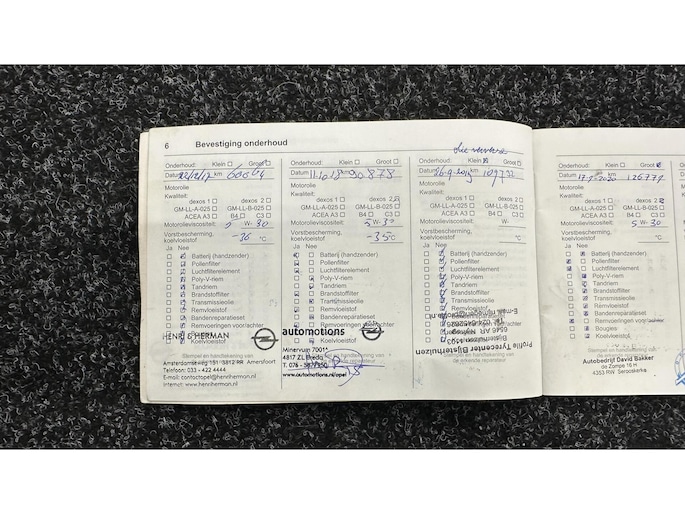 6 Bevestiging onderhoud
Onderhoud: Klein Groot
Datum 22/12/17 km
Motorolie
Kwaliteit:
dexos 1 dexos 2
GM-LL-A-025 GM-LL-B-025
ACEA A3 B4 C3
Motorolieviscositeit: 5 W- 30
Vorstbescherming,
koelvloeistof -36 °C
Ja Nee
Batterij (handzender)
Pollenfilter
Luchtfilterelement
Poly-V-riem
Tandriem
Brandstoffilter
Transmissieolie
Remvloeistof
Bandenreparatieset
Remvoeringen voor/achter
Koelvloeistof
HENRI & HERMAN
Stempel en handtekening van
Amersfoort
Telefoon: 033 - 422 4444
E-mail: contactopel@henriherman.nl
Internet: www.henriherman.nl
Onderhoud: Klein Groot
Datum 11.10.18 km 90.878
Motorolie
Kwaliteit:
dexos 1 dexos 2
GM-LL-A-025 GM-LL-B-025
ACEA A3 B4 C3
Motorolieviscositeit: 5 W- 30
Vorstbescherming,
koelvloeistof -35 °C
Ja Nee
Batterij (handzender)
Pollenfilter
Luchtfilterelement
Poly-V-riem
Tandriem
Brandstoffilter
Transmissieolie
Remvloeistof
Bandenreparatieset
Remvoeringen voor/achter
Koelvloeistof
automotions
Minervum
4817 ZL Breda
www.automotions.nl/opel
Onderhoud: Klein Groot
Datum km
Motorolie
Kwaliteit:
dexos 1 dexos 2
GM-LL-A-025 GM-LL-B-025
ACEA A3 B4 C3
Motorolieviscositeit: W-
Vorstbescherming,
koelvloeistof °C
Ja Nee
Batterij (handzender)
Pollenfilter
Luchtfilterelement
Poly-V-riem
Tandriem
Brandstoffilter
Transmissieolie
Remvloeistof
Bandenreparatieset
Remvoeringen voor/achter
Koelvloeistof
Profile Tyrecenter
Onderhoud: Klein Groot
Datum 17-9-2020 km
Motorolie
Kwaliteit:
dexos 1 dexos 2
GM-LL-A-025 GM-LL-B-025
ACEA A3 B4 C3
Motorolieviscositeit: 5 W- 30
Vorstbescherming,
koelvloeistof °C
Ja Nee
Batterij (handzender)
Pollenfilter
Luchtfilterelement
Poly-V-riem
Tandriem
Brandstoffilter
Transmissieolie
Remvloeistof
Bandenreparatieset
Remvoeringen voor/achter
Bougies
Koelvloeistof
Autobedrijf David Bakker
de Zompe 16 H
4353 RW Serooskerke